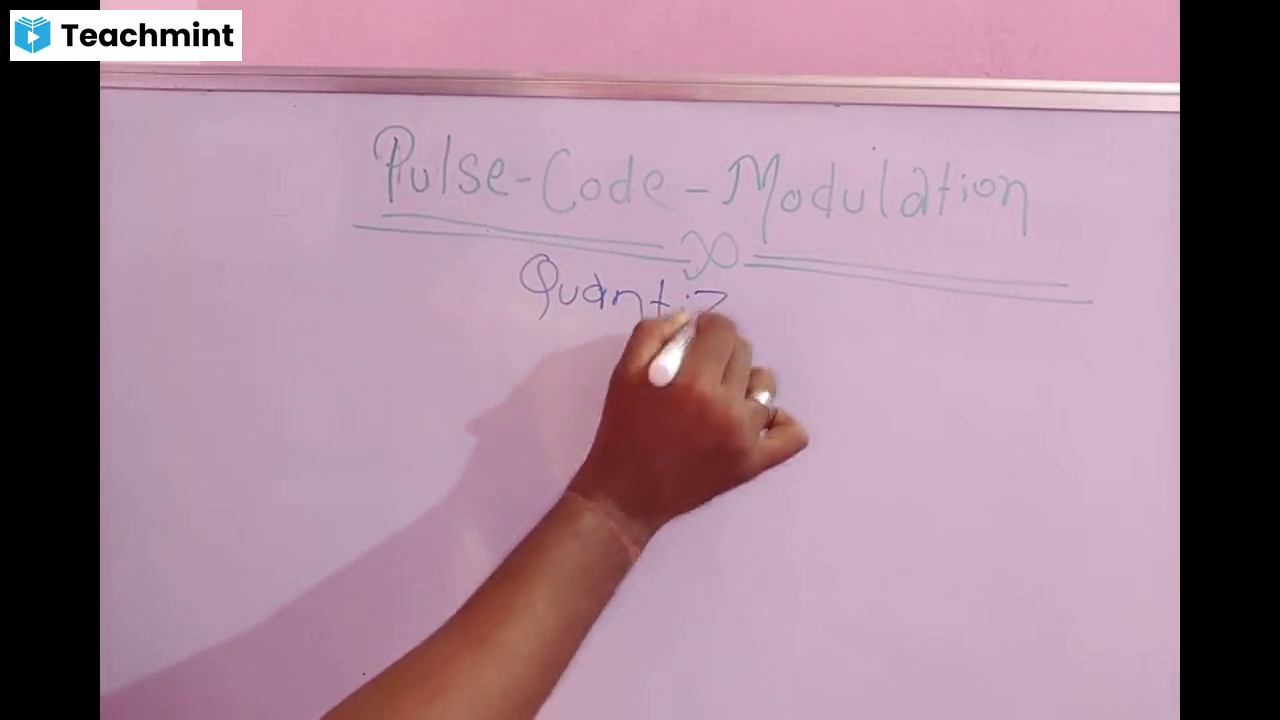 Teachmint
Pulse-Code-Modulation
Quantiz